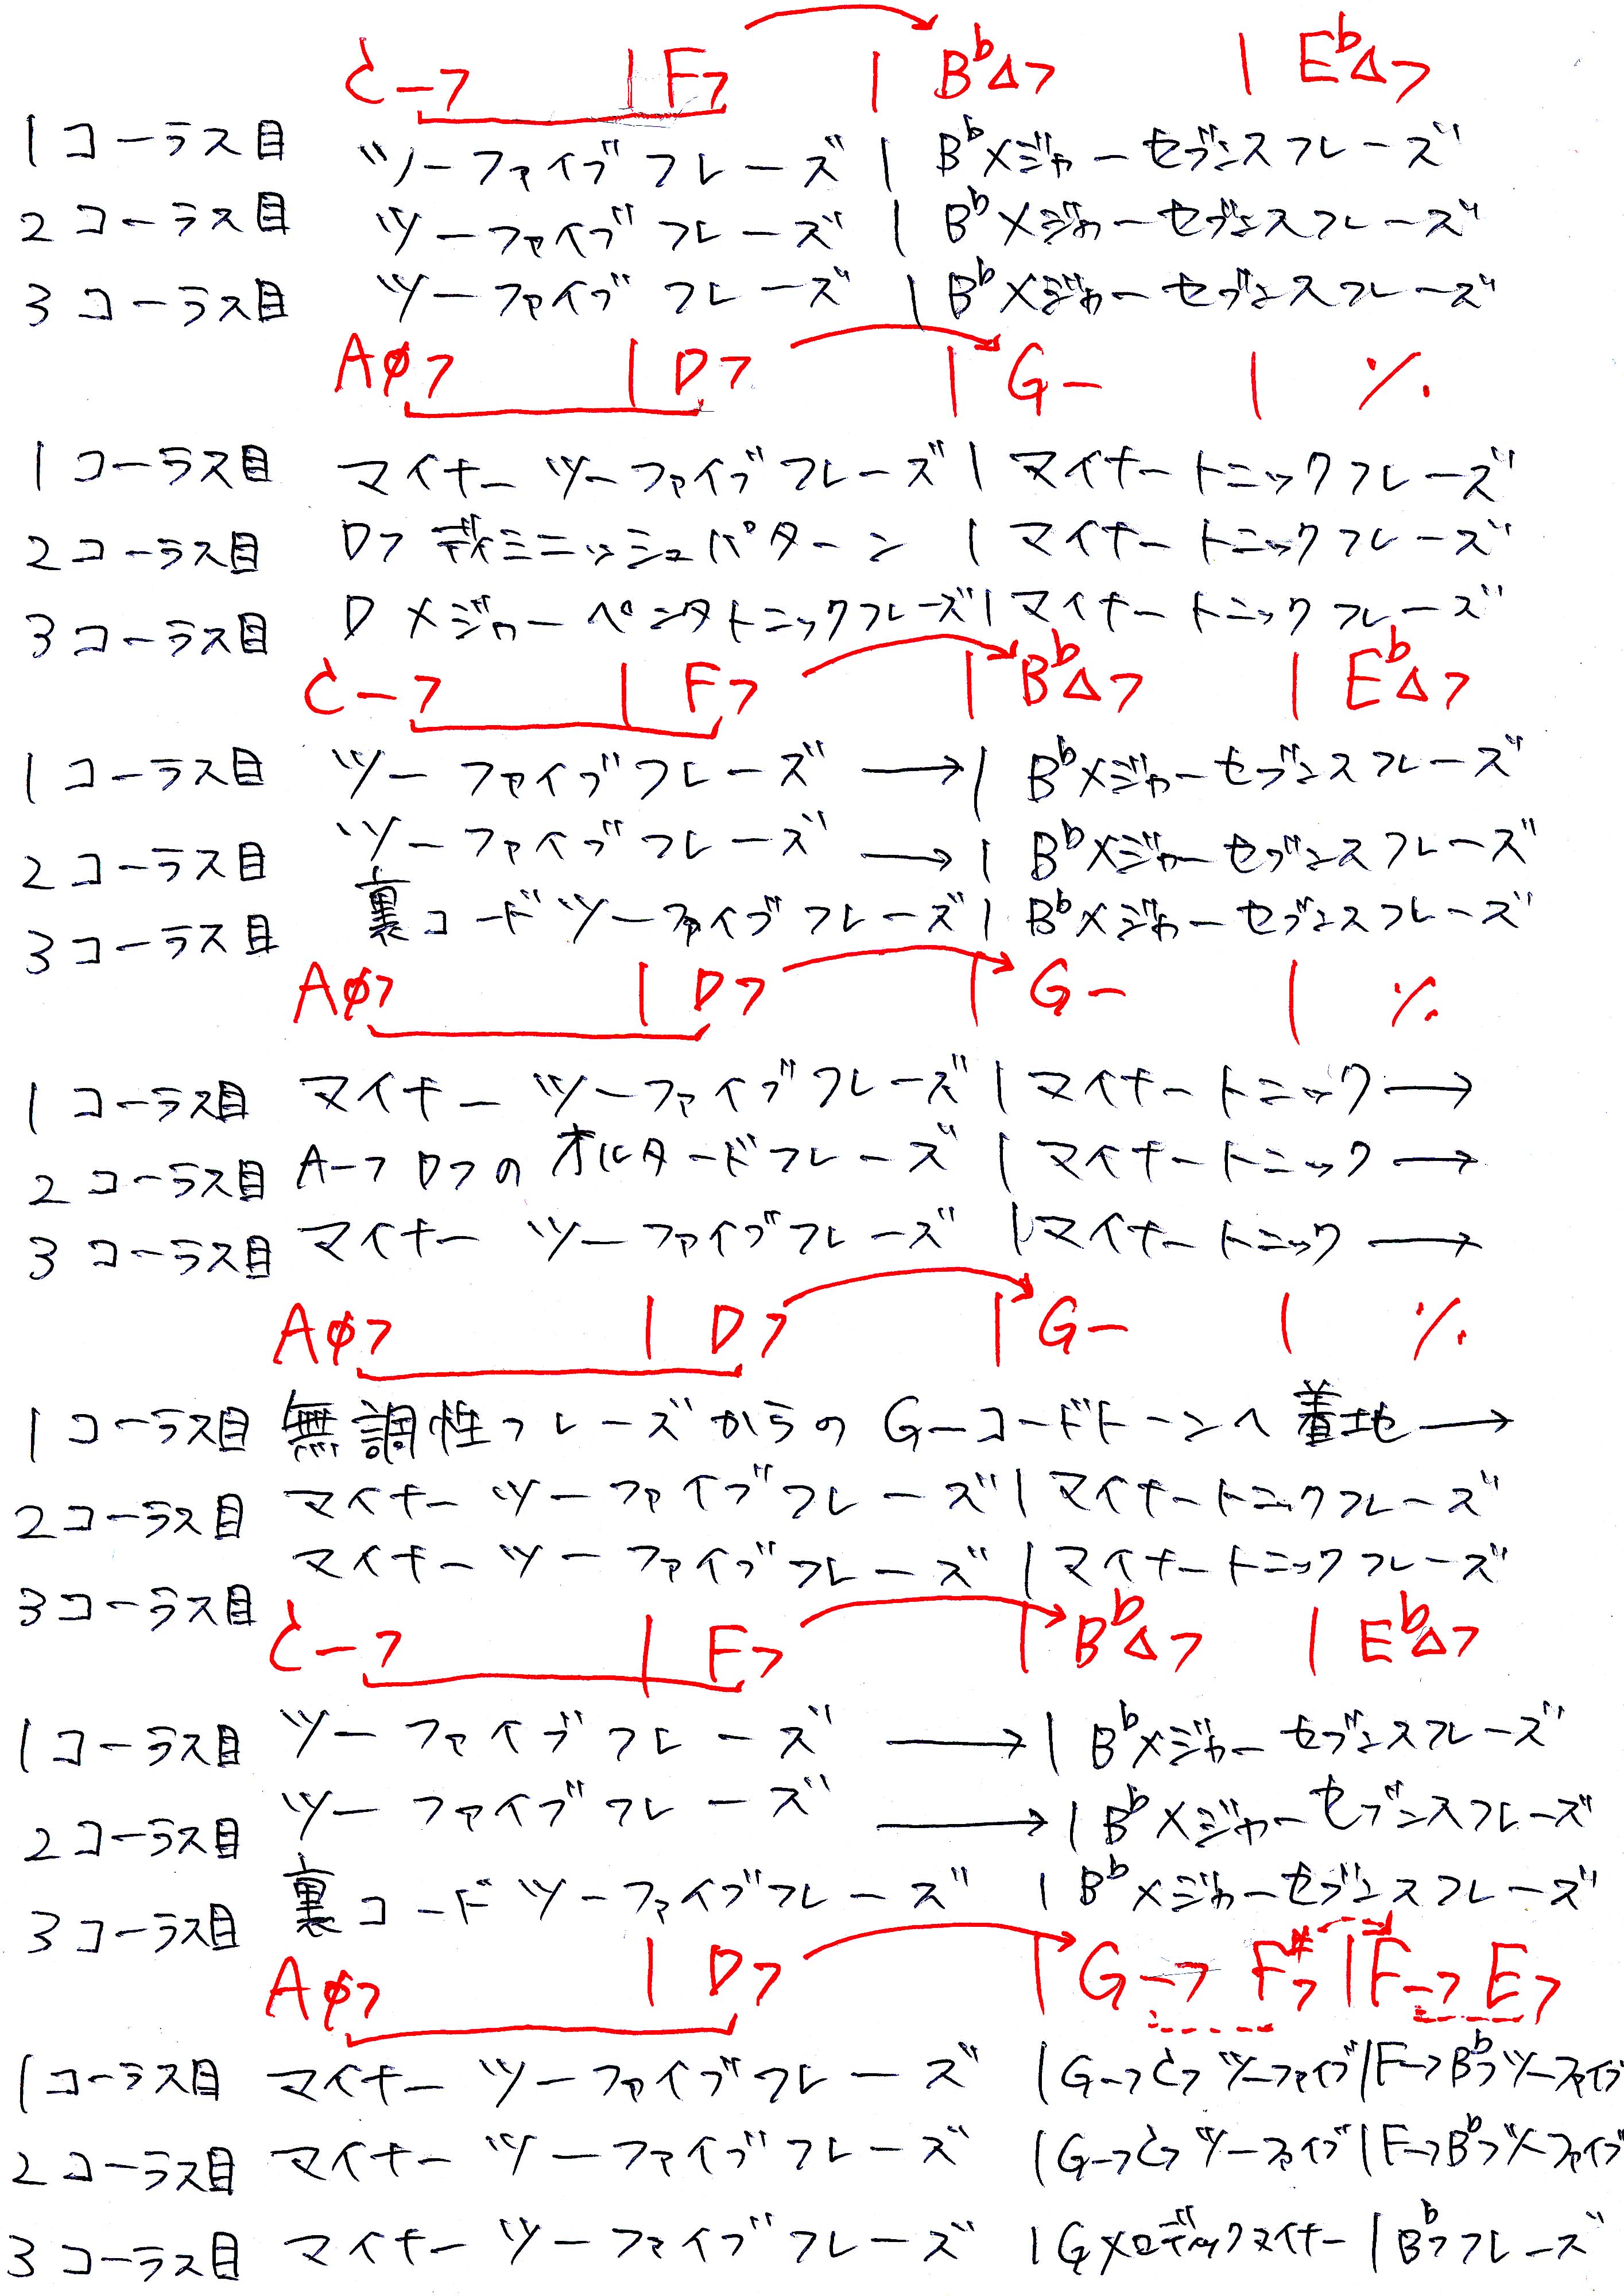 C-7 | F7 | B♭△7 | E♭△7
1コーラス目 ツーファイブフレーズ | B♭メジャーセブンスフレーズ
2コーラス目 ツーファイブフレーズ | B♭メジャーセブンスフレーズ
3コーラス目 ツーファイブフレーズ | B♭メジャーセブンスフレーズ
Aø7 | D7 | G- | %
1コーラス目 マイナーツーファイブフレーズ | マイナートニックフレーズ
2コーラス目 D7 ディミニッシュパターン | マイナートニックフレーズ
3コーラス目 Dメジャーペンタトニックフレーズ | マイナートニックフレーズ
C-7 | F7 | B♭△7 | E♭△7
1コーラス目 ツーファイブフレーズ → | B♭メジャーセブンスフレーズ
2コーラス目 ツーファイブフレーズ → | B♭メジャーセブンスフレーズ
3コーラス目 裏コードツーファイブフレーズ | B♭メジャーセブンスフレーズ
Aø7 | D7 | G- | %
1コーラス目 マイナーツーファイブフレーズ | マイナートニック →
2コーラス目 A-7 D7の オルタードフレーズ | マイナートニック →
3コーラス目 マイナーツーファイブフレーズ | マイナートニック →
Aø7 | D7 | G- | %
1コーラス目 無調性フレーズからのG-コードトーンへ着地 →
2コーラス目 マイナーツーファイブフレーズ | マイナートニックフレーズ
3コーラス目 マイナーツーファイブフレーズ | マイナートニックフレーズ
C-7 | F7 | B♭△7 | E♭△7
1コーラス目 ツーファイブフレーズ → | B♭メジャーセブンスフレーズ
2コーラス目 ツーファイブフレーズ → | B♭メジャーセブンスフレーズ
3コーラス目 裏コードツーファイブフレーズ | B♭メジャーセブンスフレーズ
Aø7 | D7 | G-7 F#7 | F-7 E7
1コーラス目 マイナーツーファイブフレーズ | G-7 C7 ツーファイブ | F-7 B♭7 ツーファイブ
2コーラス目 マイナーツーファイブフレーズ | G-7 C7 ツーファイブ | F-7 B♭7 ツーファイブ
3コーラス目 マイナーツーファイブフレーズ | Gメロディックマイナー | B♭7フレーズ